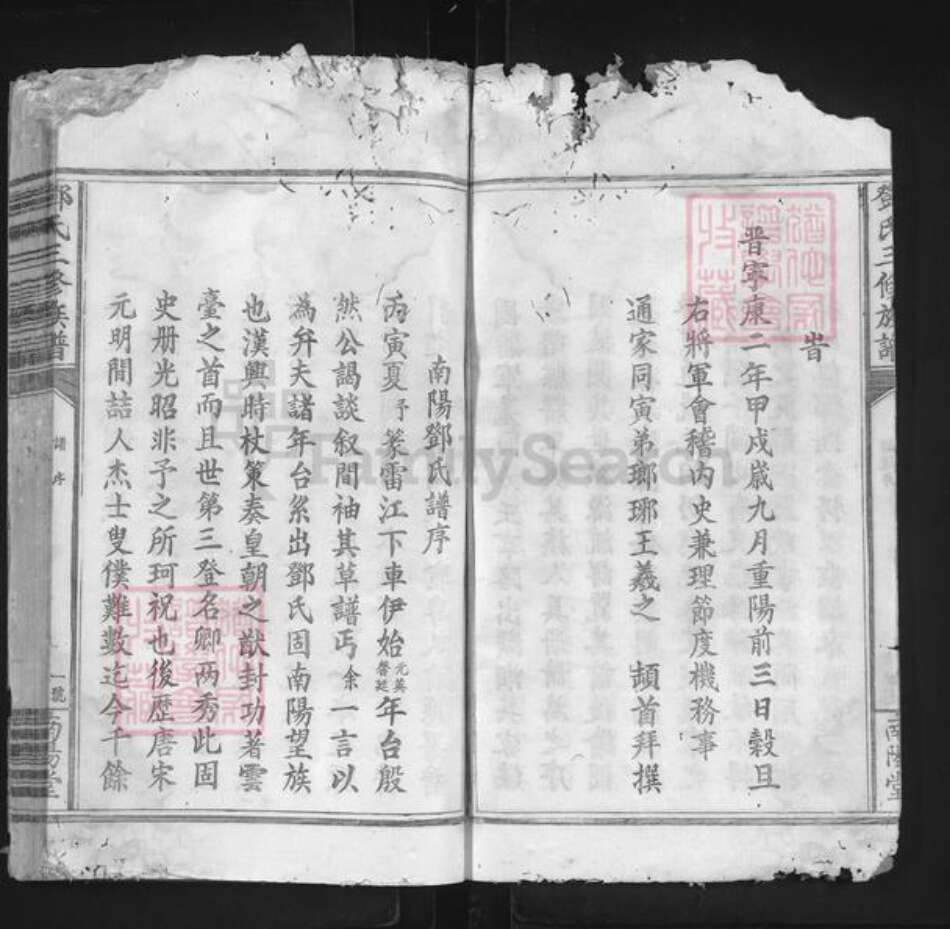 鄧氏三修族譜
旹
晋寧康二年甲戌歲九月重陽前三日穀旦
右將軍會稽內史兼理節度機務事
通家同寅弟瑯琊王羲之 頓首拜撰
南陽堂
南陽鄧氏譜序
丙寅夏予蒞雷江下車伊始元英啓廷年台殷
然公謁談叙間袖其草譜丐余一言以
為弁夫諸年台系出鄧氏固南陽望族
也漢興時杖策奏皇朝之猷封功著雲
臺之首而且世第三登名卿兩秀此固
史册光昭非予之所珂祝也後歷唐宋
元明間詰人杰士叟僕難數迄今千餘
鄧氏三修族譜
譜序
一號
南陽堂
FamilySearch